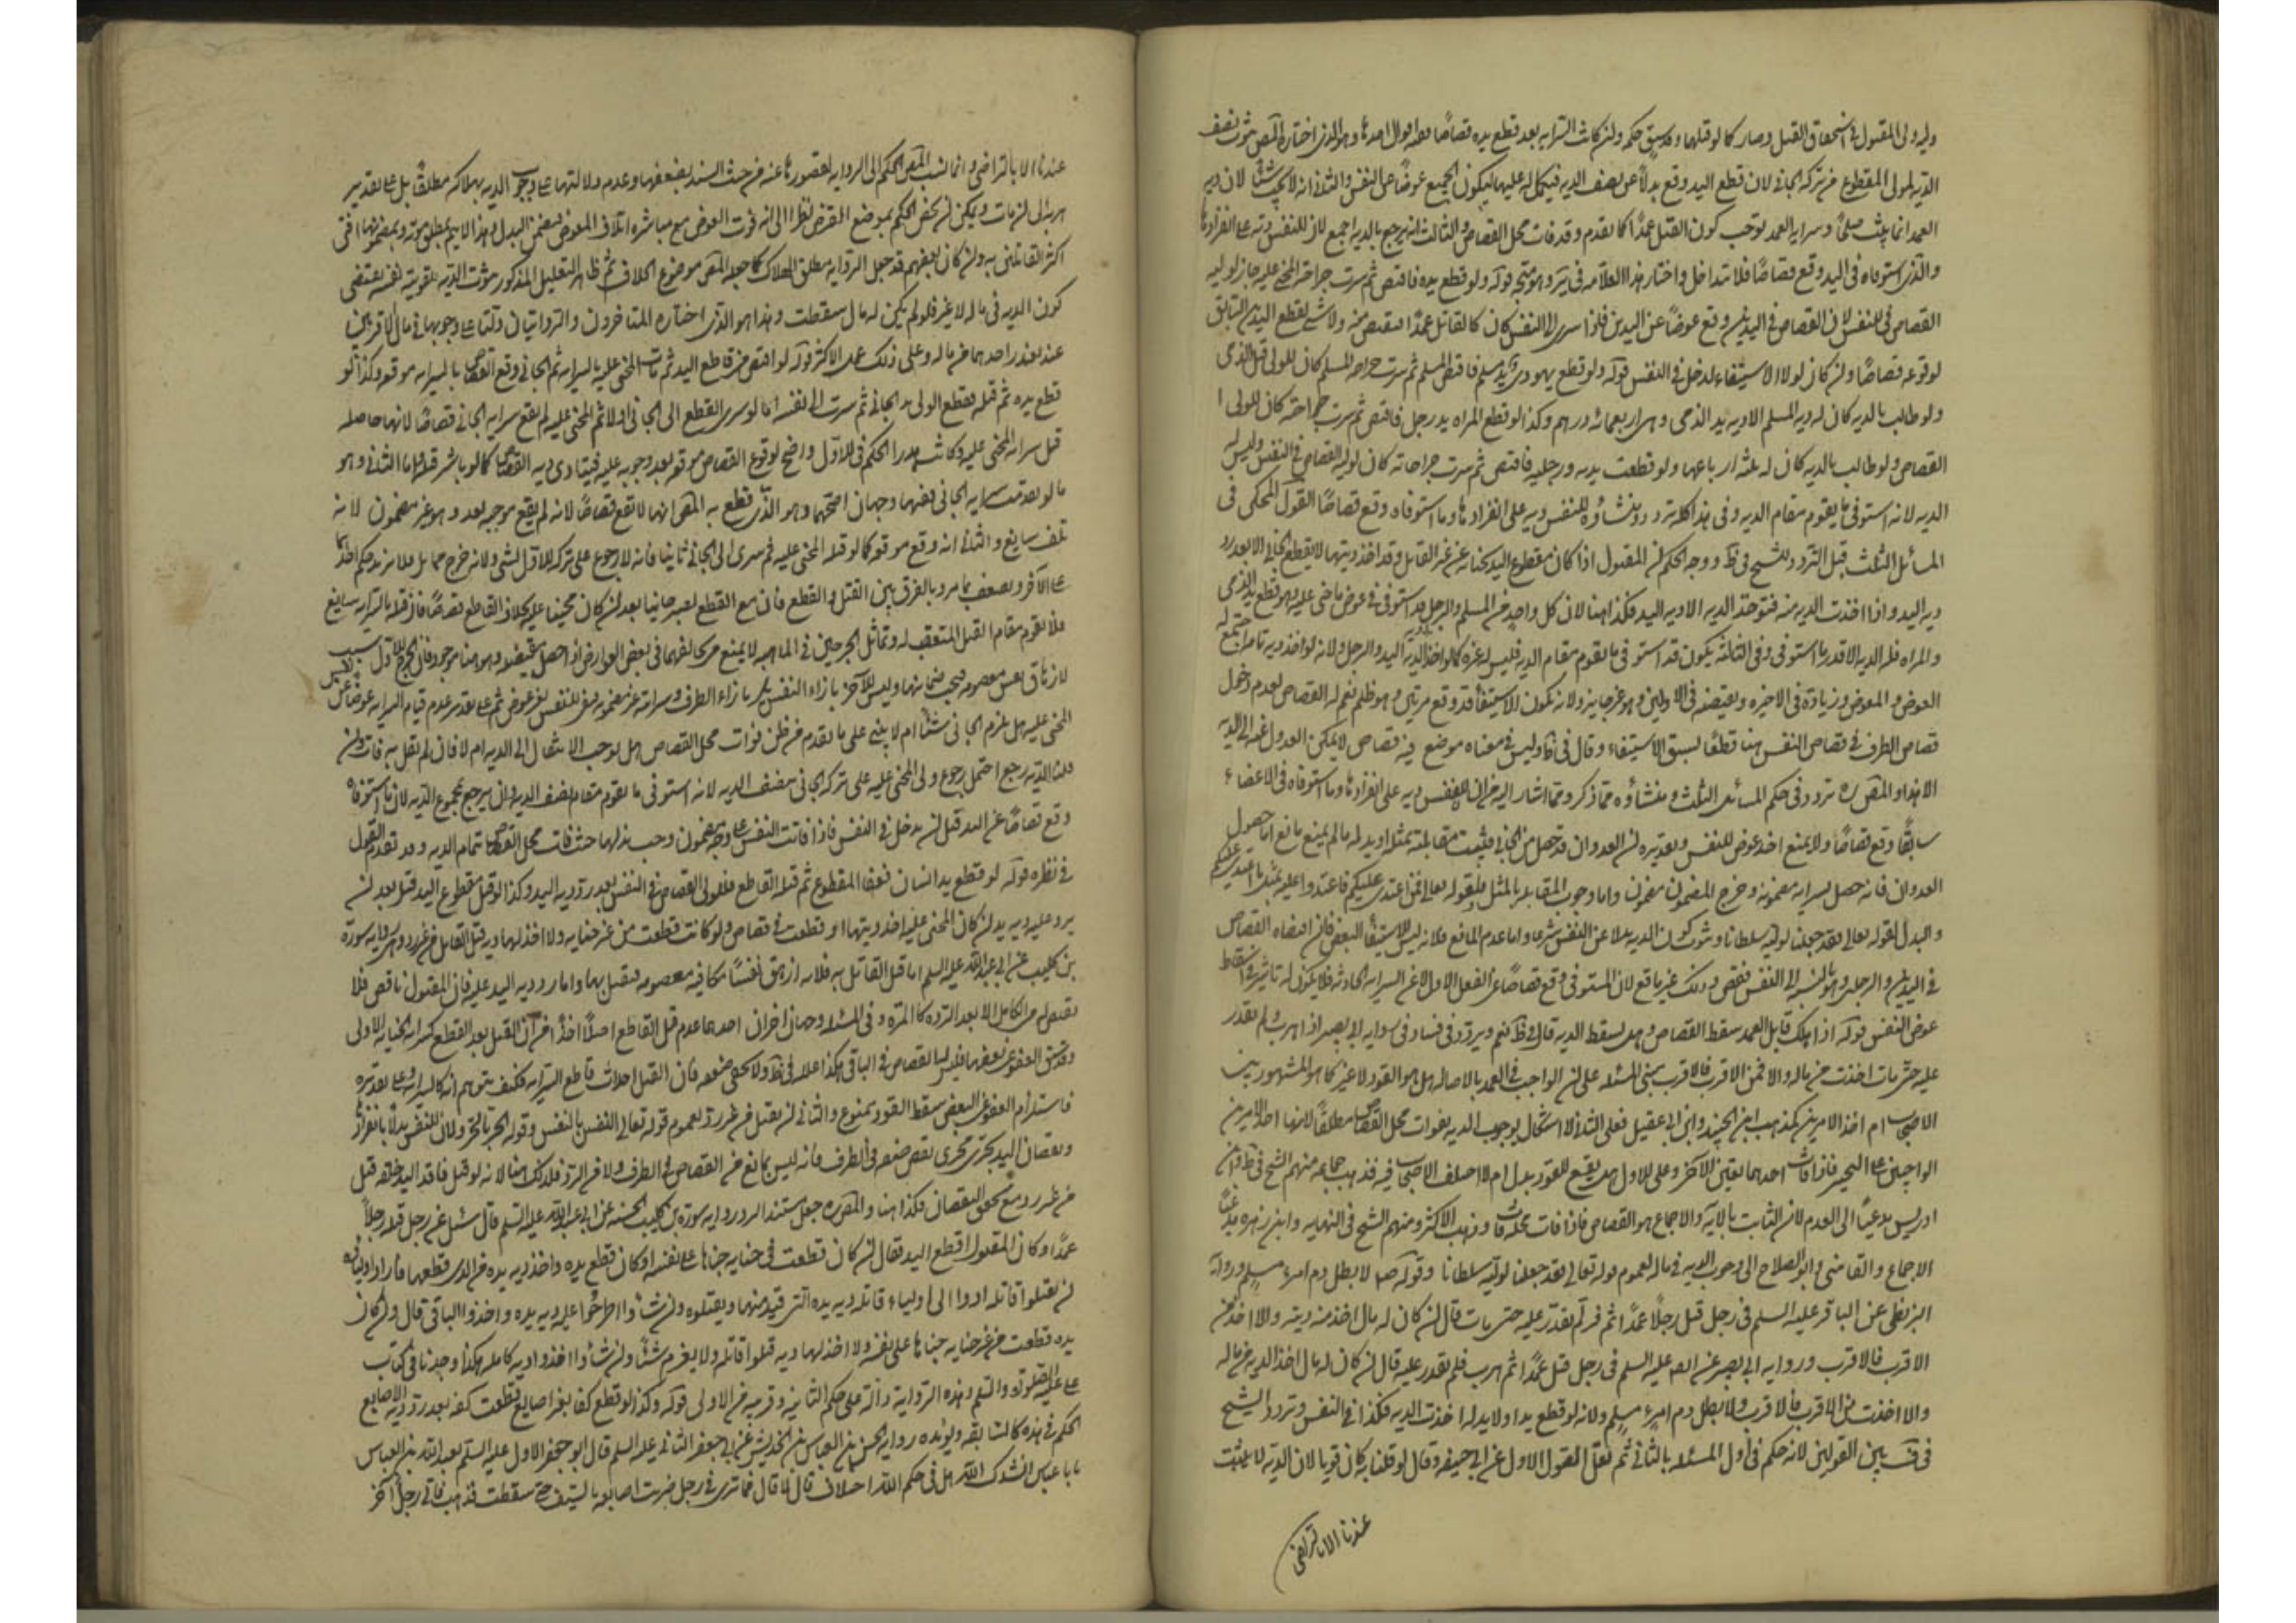 وليه ولي المقتول في استحقاق القتل وصار كما لو قتلهما وقد سبق حكمه وان كانت السراية بعد قطع يده قصاصا ففيه اقوال احدها وهو الذي اختاره المص ثبوت نصف
الدية لمولى المقطوع من تركة الجاني لان قطع اليد وقع بدلا عن نصف الدية فيكمل له عليها ليكون الجميع عوضا عن النفس والثاني انه لا يجب شئ لان دية
العمد انما يثبت صلحا وسراية العمد توجب كون القتل عمدا كما تقدم وقد فات محل القصاص والثالث انه يرجع بالدية اجمع لان للنفس دية على انفرادها
والذي استوفاه في اليد وقع قصاصا فلا يتداخل واختار هذا العلامة في ير وهو متجه قوله ولو قطع يده فاقتص ثم سرت جراحة المجني عليه جاز لوليه
القصاص في النفس لان القصاص في اليدين وقع عوضا عن اليدين فاذا سرى الى النفس كان كالقاتل عمدا فيقتص منه ولا شئ لقطع اليدين السابق
لوقوعه قصاصا وان كان لولا الاستيفاء لدخل في النفس قوله ولو قطع يهودي يد مسلم فاقتص المسلم ثم سرت جراحة المسلم كان للولي قتل الذمي
ولو طالب بالدية كان له دية المسلم الا دية يد الذمي وهي اربعمائة درهم وكذا لو قطع المراة يد رجل فاقتص ثم سرت جراحته كان للولي ا
القصاص ولو طالب بالدية كان له ثلثة ارباعها ولو قطعت يديه ورجليه فاقتص ثم سرت جراحاته كان لوليه القصاص في النفس وليس له
الدية لانه استوفى ما يقوم مقام الدية وفي هذا كله تردد ومنشاؤه ان للنفس دية على انفرادها وما استوفاه وقع قصاصا القول المحكي في
المسائل الثلث قبل التردد للشيخ في ط ووجه الحكم ان المقتول اذا كان مقطوع اليد بجناية من غير القاتل وقد اخذ ديتها لا يقطع الجاني الا بعد رد
دية اليد واذا اخذت الدية منه فيؤخذ الدية الا دية اليد فكذا هنا لان كل واحد من المسلم والرجل قد استوفى في عوض ما جنى عليه وهو قطع يد الذمي
والمراة فله الدية الا قدر ما استوفى وفي الثالثة يكون قد استوفى ما يقوم مقام الدية فليس له غيره كما لو اخذ دية اليد والرجل ولانه لو اخذ دية تامة اجتمع له
العوض والمعوض وزيادة في الاخيرة وبعضه في الاولين وهو غير جايز ولانه يكون الاستيفاء قد وقع مرتين وهو ظلم نعم له القصاص لعدم دخول
قصاص الطرف في قصاص النفس هنا قطعا لسبق الاستيفاء وقال في ط وليس في معناه موضع فيه قصاص لا يمكن العدول عنه الى الدية
الا هذا والمص ره تردد في حكم المسائل الثلث ومنشاؤه مما ذكر ومما اشار اليه من ان للنفس دية على انفرادها وما استوفاه في الاعضاء
سابقا وقع قصاصا ولا يمنع اخذ عوض للنفس وتقديره ان العدوان قد حصل من الجاني فيثبت مقابلته بمثله او بدله ما لم يمنع مانع اما حصول
العدوان فانه حصل بسراية مضمونة وخرج المضمون مضمون واما وجوب المقابلة بالمثل فلقوله تعالى فمن اعتدى عليكم فاعتدوا عليه بمثل ما اعتدى عليكم
والبدل لقوله تعالى فقد جعلنا لوليه سلطانا وثبوت كون الدية بدلا عن النفس شرعا واما عدم المانع فلانه ليس الا استيفاء البعض فان اقتضاه القصاص
في اليدين والرجلين وهو بالنسبة الى النفس نقص وذلك غير مانع لان المستوفى وقع قصاصا عن الفعل الاول لا عن السراية الحادثة فلا يكون له تاثير في اسقاط
عوض النفس قوله اذا هلك قاتل العمد سقط القصاص وهل يسقط الدية قال في ط نعم ويردد في ف وفي رواية ابي بصير اذا هرب ولم يقدر
عليه حتى مات اخذت من ماله والا فمن الاقرب فالاقرب مبنى المسئلة على ان الواجب في العمد بالاصالة هل هو القود لا غير كما هو المشهور بين
الاصحاب ام احد الامرين كمذهب ابن الجنيد وابن ابي عقيل فعلى الثاني لا اشكال في وجوب الدية بفوات محل القصاص مطلقا لانها احد الامرين
الواجبين على التخيير فاذا فات احدهما تعين الاخر وعلى الاول هل يقع للقود بدل ام لا اختلف الاصحاب فيه فذهب جماعة منهم الشيخ في ط وابن
ادريس مدعيا الى العدم لان الثابت بالاية والاجماع هو القصاص فاذا فات محله فات وذهب الاكثر ومنهم الشيخ في النهاية وابن زهرة مدعيا
الاجماع والقاضي وابو الصلاح الى وجوب الدية في ماله لعموم قوله تعالى فقد جعلنا لوليه سلطانا وقوله ص لا يطل دم امرء مسلم ورواية
البزنطي عن الباقر عليه السلم في رجل قتل رجلا عمدا ثم فر فلم يقدر عليه حتى مات قال ان كان له مال اخذ منه ديته والا اخذ من
الاقرب فالاقرب ورواية ابي بصير عنه عليه السلم في رجل قتل عمدا ثم هرب فلم يقدر عليه قال ان كان له مال اخذ الدية من ماله
والا اخذت من الاقرب فالاقرب ولا يبطل دم امرء مسلم ولانه لو قطع يدا ولا يد له اخذت الدية فكذا في النفس وتردد الشيخ
في ف بين القولين لانه حكم في اول المسئلة بالثاني ثم نقل القول الاول عن ابي حنيفة وقال لو قلنا به كان قويا لان الدية لا يثبت
عندنا الا بالتراضي
عندنا الا بالتراضي وانما نسب المص الحكم الى الرواية لقصورها عنه من حيث السند لضعفها وعدم دلالتها على وجوب الدية بهلاكه مطلقا بل على تقدير
هربه الى ان مات ويمكن ان يخص الحكم بموضع النص نظرا الى انه فوت العوض مع مباشرة اتلاف المعوض فيضمن البدل وهذا لا يتم بمطلق موته وبمضمونها افتى
اكثر القائلين به وان كان بعضهم قد جعل الرواية مطلق الهلاك كما جعله المص موضوع الخلاف ثم ظاهر التعليل المذكور ثبوت الدية بتفويته نفسه مقتضى
كون الدية في ماله لا غير فلو لم يكن له مال سقطت وهذا هو الذي اختاره المتاخرون والروايتان دلتا على وجوبها في مال الاقربين
عند تعذر اخذها من ماله وعلى ذلك عمل الاكثر قوله لو اقتص من قاطع اليد ثم مات المجني عليه بالسراية ثم الجاني وقع القصاص بالسراية موقعه وكذا لو
قطع يده ثم قتله فقطع الولي يد الجاني ثم سرت الى نفسه اما لو سرى القطع الى الجاني اولا ثم المجني عليه لم يقع سراية الجاني قصاصا لانها حاصلة
قبل سراية المجني عليه وكانت هدرا الحكم في الاول واضح لوقوع القصاص موقعه بعد وجوبه عليه فيتادى به القصاص كما لو باشر قتله واما الثاني وهو
ما لو تقدمت سراية الجاني ففيها وجهان اصحهما وهو الذي قطع به المص انها لا تقع قصاصا لانه لم يقع موجبه بعد وهو غير مضمون لانه
تلف سايغ والثاني انه وقع موقعه كما لو قتله المجني عليه ثم سرى الى الجاني ثانيا فانه لا رجوع على تركة الاول بشئ
على الاخر ويضعف بما مر وبالفرق بين القتل والقطع فان مع القطع يعتبر جانيا بعد ان كان مجنيا عليه بخلاف القاطع
فلا يقوم مقام القتل المتعقب له وتماثل الجرحين في الماهية لا يمنع من تخالفهما في بعض العوارض اذا حصل مقتضيه وهو هنا موجود فان الجرح الاول سبب
لازهاق نفس معصومة فيجب ضمانها وليس الاخر بازاء النفس بل بازاء الطرف وسرايته غير مضمونة فبقي النفس بغير عوض ثم على تقدير عدم قيام السراية عوضا عن نفس
المجني عليه هل يلزم الجاني شئ ام لا يبنى على ما تقدم من ان فوات محل القصاص هل يوجب الانتقال الى الدية ام لا فان لم نقل به فات وان
قلنا بالدية رجع احتمل رجوع ولي المجني عليه على تركة الجاني بنصف الدية لانه استوفى ما يقوم مقام نصف الدية وان يرجع بجميع الدية لان ما استوفاه
وقع قصاصا عن اليد قبل ان يدخل في النفس فاذا فاتت النفس على وجه مضمون وجب بذلها حيث فات محل القصاص تمام الدية وقد تقدم القول
في نظيره قوله لو قطع يد انسان فعفا المقطوع ثم قتله القاطع فللولي القصاص في النفس بعد رد دية اليد وكذا لو قتل مقطوع اليد قتل بعد ان
يرد عليه دية يده ان كان المجني عليه اخذ ديتها او قطعت في قصاص ولو كانت قطعت من غير جناية ولا اخذ لها دية قتل القاتل من غير رد وهي رواية سورة
بن كليب عن ابي عبد الله عليه السلم اما قتل القاتل به فلانه ازهق نفسا مكافية معصومة فيقتل بها واما رد دية اليد عليه فان المقتول ناقص فلا
يقتص له من الكامل الا بعد الرد كالمراة وفي المسئلة وجهان اخران احدهما عدم قتل القاطع اصلا اخذا من ان القتل بعد القطع كسراية الجناية الاولى
وقد سبق العفو عن بعضها فليس له القصاص في الباقي هكذا علله في ط ولا يخفى ضعفه فان القتل احداث قاطع السراية فكيف يتوهم انه كالسراية وعلى تقديره
فاستلزام العفو عن البعض سقوط القود ممنوع والثاني ان يقتل من غير رد لعموم قوله تعالى النفس بالنفس وقوله الحر بالحر ولان للنفس بدلا بانفرادها
ونقصان اليد يجري مجرى نقص صفة في الطرف فانه ليس بمانع من القصاص في الطرف ولا من الرد فكذلك هنا لانه لو قتل فاقد اليد خلقة قتل
من غير رد مع تحقق النقصان فكذا هنا والمص ره جعل مستند الرد رواية سورة بن كليب الحسنة عن ابي عبد الله عليه السلم قال سئل عن رجل قتل رجلا
عمدا وكان المقتول اقطع اليد فقال ان كان قطعت في جناية جناها على نفسه او كان قطع يده واخذ دية يده من الذي قطعها فاراد اولياؤه
ان يقتلوا قاتله ادوا الى اولياء قاتله دية يده التي قيد منها ويقتلوه وان شاؤا طرحوا عنه دية يده واخذوا الباقي قال وان كان
يده قطعت من غير جناية جناها على نفسه ولا اخذ لها دية قتلوا قاتله ولا يغرم شيئا وان شاؤا اخذوا دية كاملة هكذا وجدنا في كتاب
علي عليه الصلوة والسلم وهذه الرواية دالة على حكم الثانية وقريبة من الاولى قوله وكذا لو قطع كفا بغير اصابع قطعت كفه بعد رد دية الاصابع
الحكم في هذه كالسابقة ويؤيده رواية الحسن بن العباس بن الحريش عن ابي جعفر الثاني عليه السلم قال قال ابو جعفر الاول عليه السلم لعبد الله بن العباس
يا با عباس انشدك الله هل في حكم الله اختلاف قال لا قال فما ترى في رجل ضربت اصابعه بالسيف حتى سقطت فذهب فاتى رجل اخر